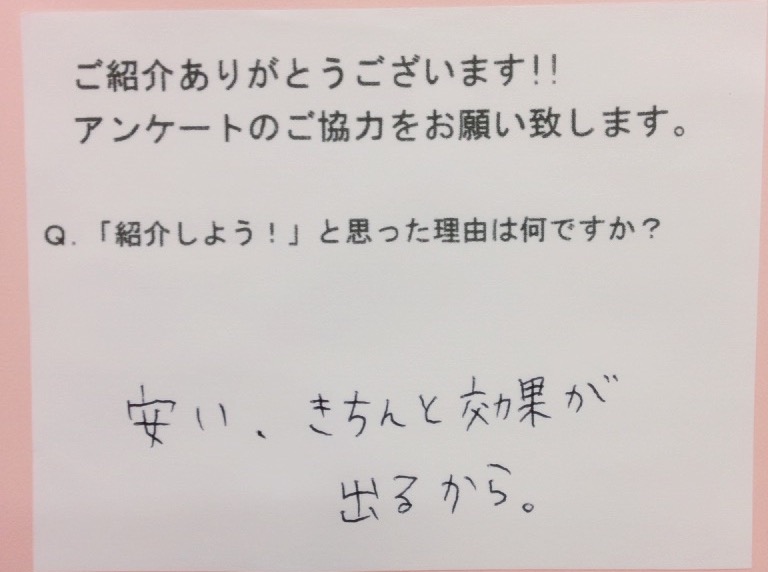 ご紹介ありがとうございます!!
アンケートのご協力をお願い致します。
Q.「紹介しよう！」と思った理由は何ですか？
安い、きちんと効果が
出るから。